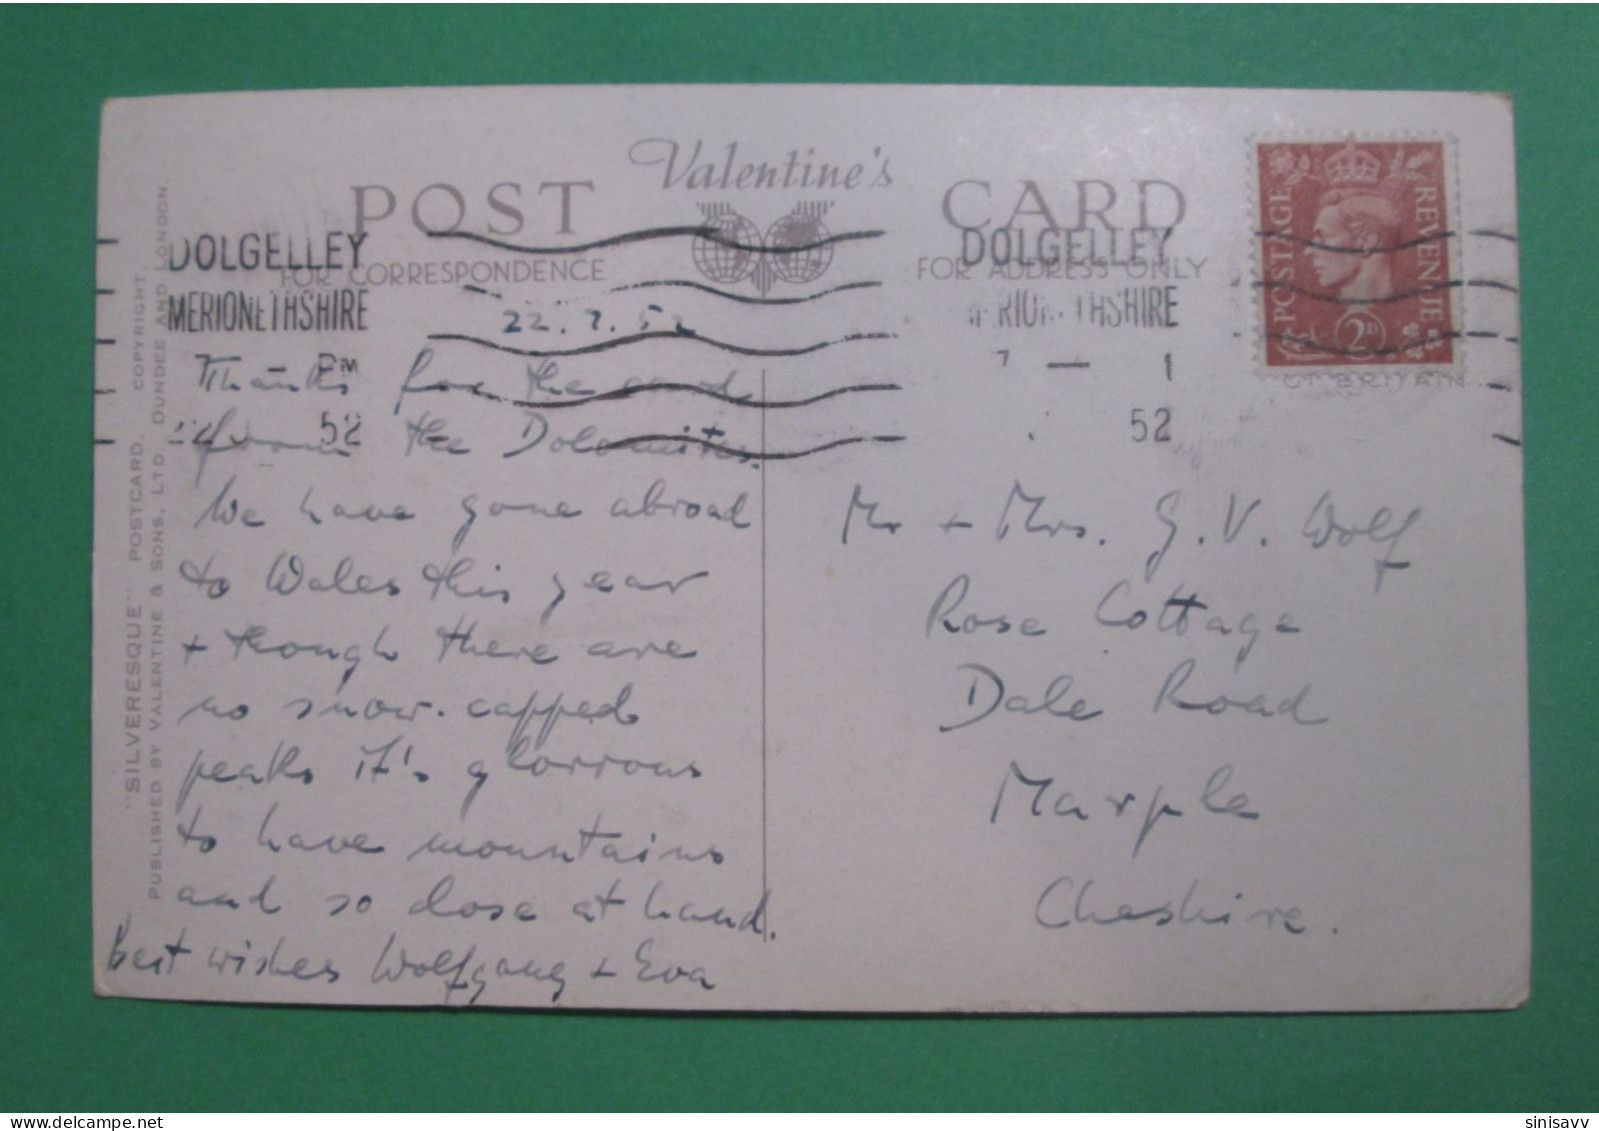 Valentine's
POST CARD
FOR CORRESPONDENCE
FOR ADDRESS ONLY
DOLGELLEY
MERIONETHSHIRE
PM
52
DOLGELLEY
THSHIRE
1
52
POSTAGE
REVENUE
2D
"SILVERESQUE" POSTCARD. COPYRIGHT.
PUBLISHED BY VALENTINE & SONS, LTD. DUNDEE AND LONDON.
22.7.52
Thanks for the card
from the Dolomites.
We have gone abroad
to Wales this year
+ though there are
no snow-capped
peaks it's glorious
to have mountains
and so close at hand.
Best wishes Wolfgang + Eva
Mr + Mrs. G. V. Wolf
Rose Cottage
Dale Road
Marple
Cheshire.
sinisavv